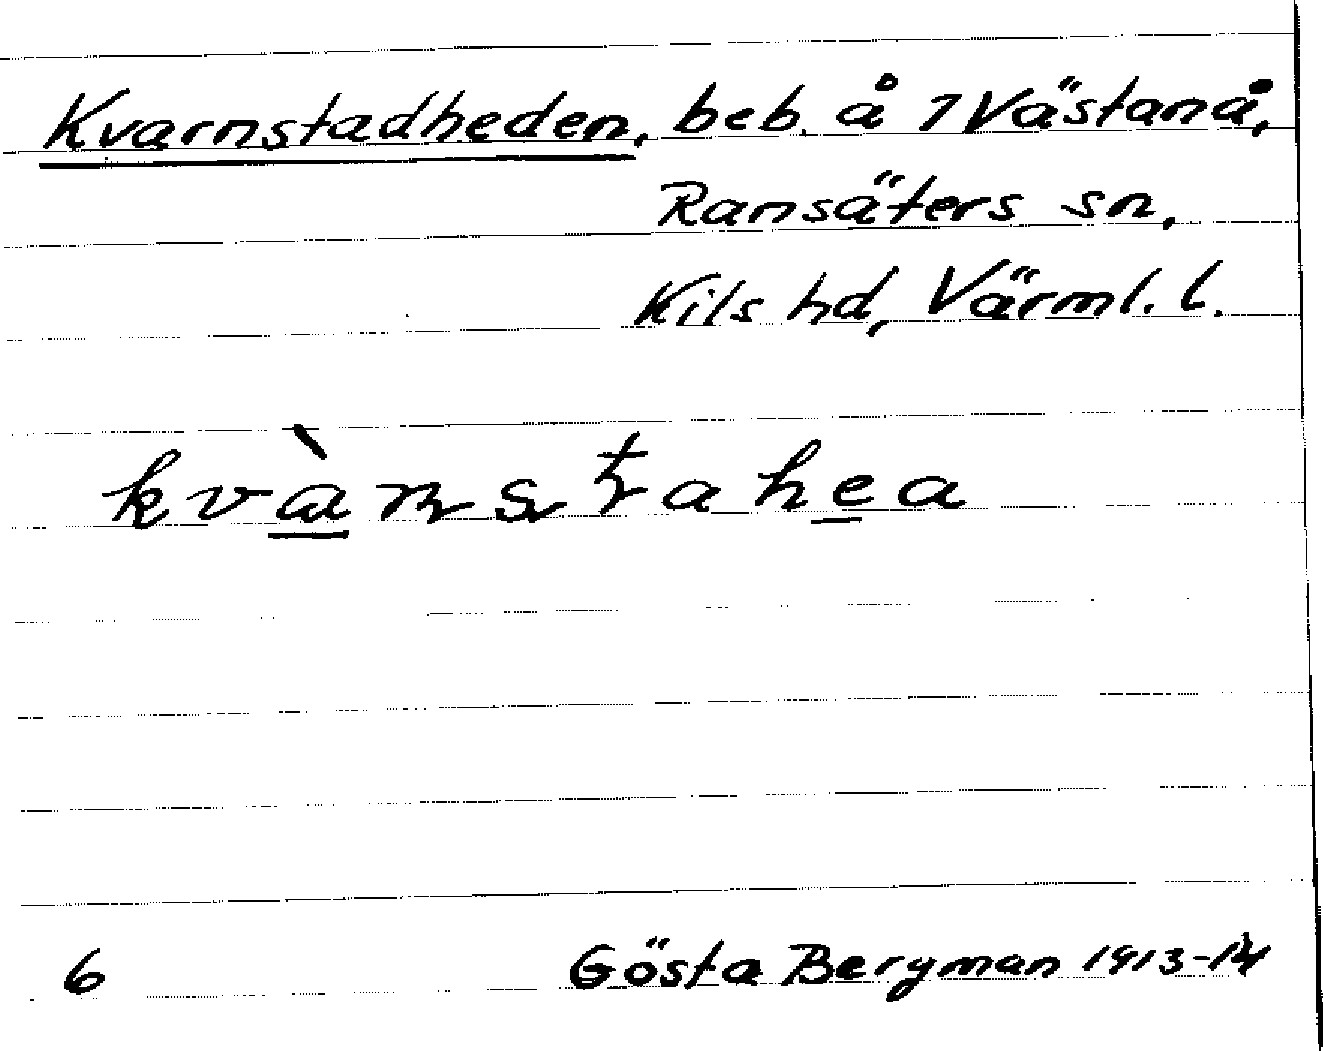 Kvarnstadheden, beb. å 7 Västanå,
Ransäters sn,
Kils hd, Värml. l.
kvànstahea
6 Gösta Bergman 1913-14